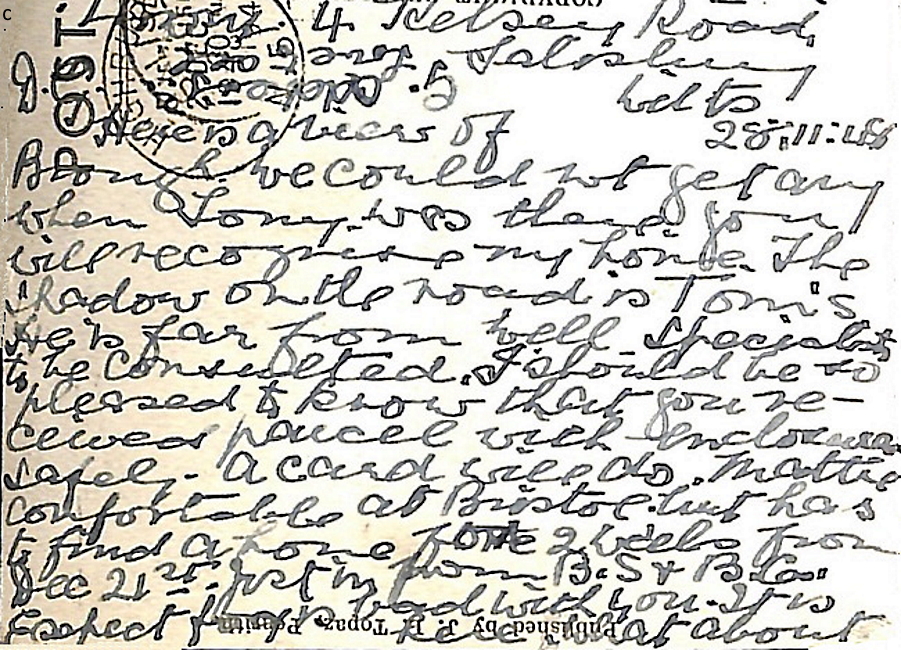 4 Kelsey Road,
Salisbury
Wilts
Here is a view of 28:11:48
Brough we could not get any
when Tony was there you
will recognise my house. The
shadow on the road is Tom's
He is far from well Specialists
to be consulted. I should be so
pleased to know that you re-
ceived parcel with enclosures
safely. A card will do. Mattie
comfortable at Bristol but has
to find a home for 2 weeks from
Dec 21st. Just in from B.S & B.Co.
Expect fog is bad with you. It is
here. What about
Published by J. Topaz, Penrith